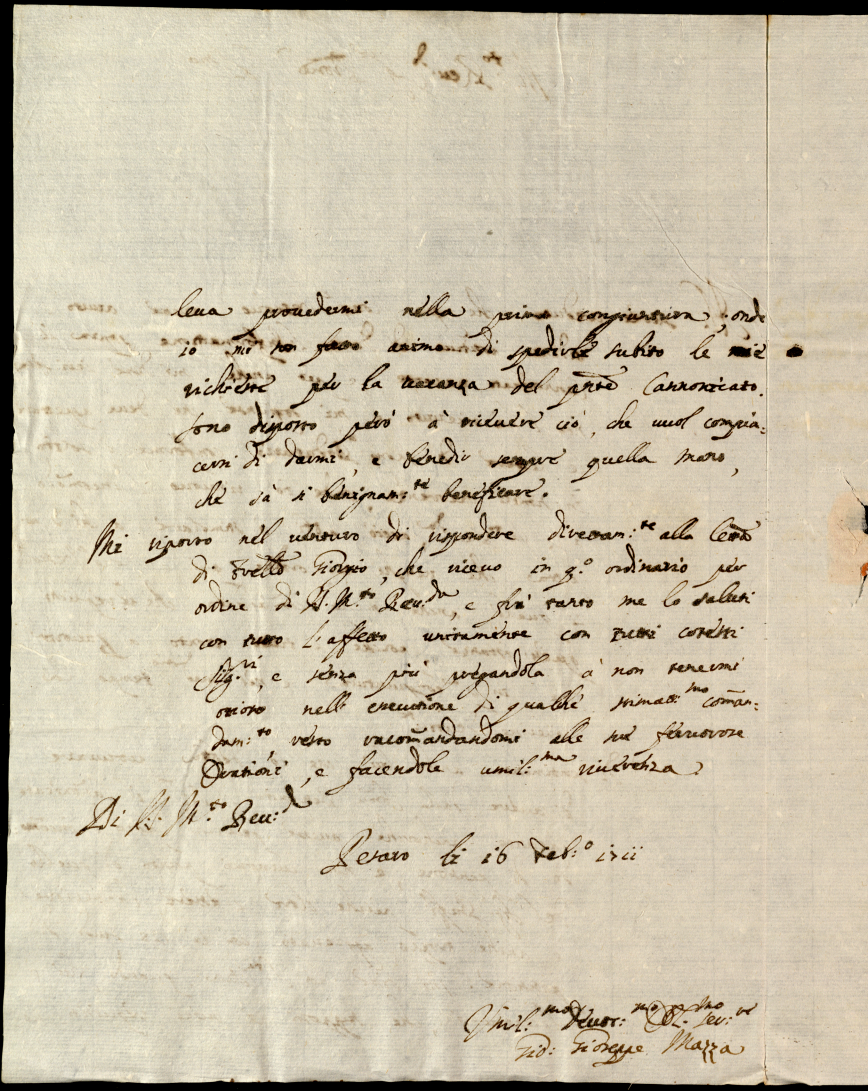 leva provedermi nella prima congiuntura, onde
io mi son fatto animo di spedirle subito le mie
richieste per la vacanza del pnte Cannonicato.
Sono disposto però à ricevere ciò, che vuol compia:
cersi di darmi, e benedir sempre quella mano,
che sà si benignam:te beneficare.
Mi riporto nel venturo di rispondere direttam:te alla
di Giorgio, che ricevo in q.o ordinario per
ordine di V. M.to Rev:da, e frà tanto me lo saluti
con tutto l'affetto unitamente con tutti cotesti
Sig:ri, e senza più pregandola à non tenermi
otioso nell'esecutione di qualche stimatis:mo coman:
dam:to, resto racomandandomi alle sue fervorose
Orationi, e facendole umil:ma riverenza
Di V. M.to Rev:da
Pesaro li 16 Feb:o 1711
Umil:mo Devot:mo Obl:mo Ser:re
Gio: Gioseppe Mazza